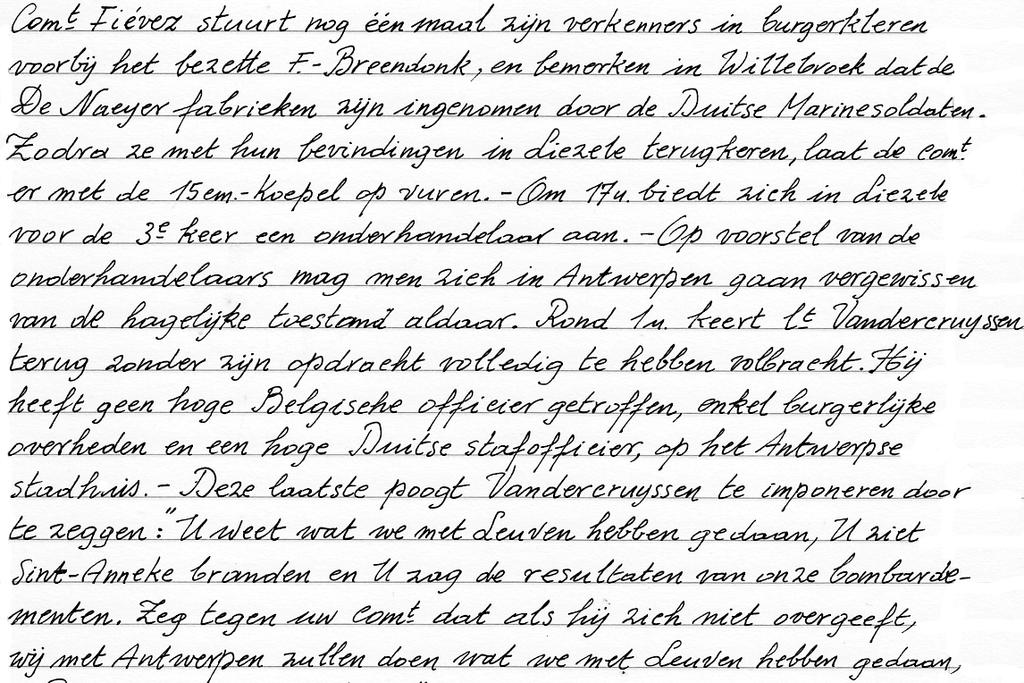 Comt Fiévez stuurt nog één maal zijn verkenners in burgerkleren
voorbij het bezette F.-Breendonk, en bemerken in Willebroek dat de
De Naeyer fabrieken zijn ingenomen door de Duitse Marinesoldaten.
Zodra ze met hun bevindingen in Liezele terugkeren, laat de comt
er met de 15cm.-Koepel op vuren. - Om 17u. biedt zich in Liezele
voor de 3e keer een onderhandelaar aan. - Op voorstel van de
onderhandelaars mag men zich in Antwerpen gaan vergewissen
van de hagelijke toestand aldaar. Rond 1u. keert lt Vandercruyssen
terug zonder zijn opdracht volledig te hebben volbracht. Hij
heeft geen hoge Belgische officier getroffen, enkel burgerlijke
overheden en een hoge Duitse stafofficier, op het Antwerpse
stadhuis. - Deze laatste poogt Vandercruyssen te imponeren door
te zeggen: "U weet wat we met Leuven hebben gedaan, U ziet
Sint-Anneke branden en U zag de resultaten van onze bombarde-
menten. Zeg tegen uw comt dat als hij zich niet overgeeft,
wij met Antwerpen zullen doen wat we met Leuven hebben gedaan,